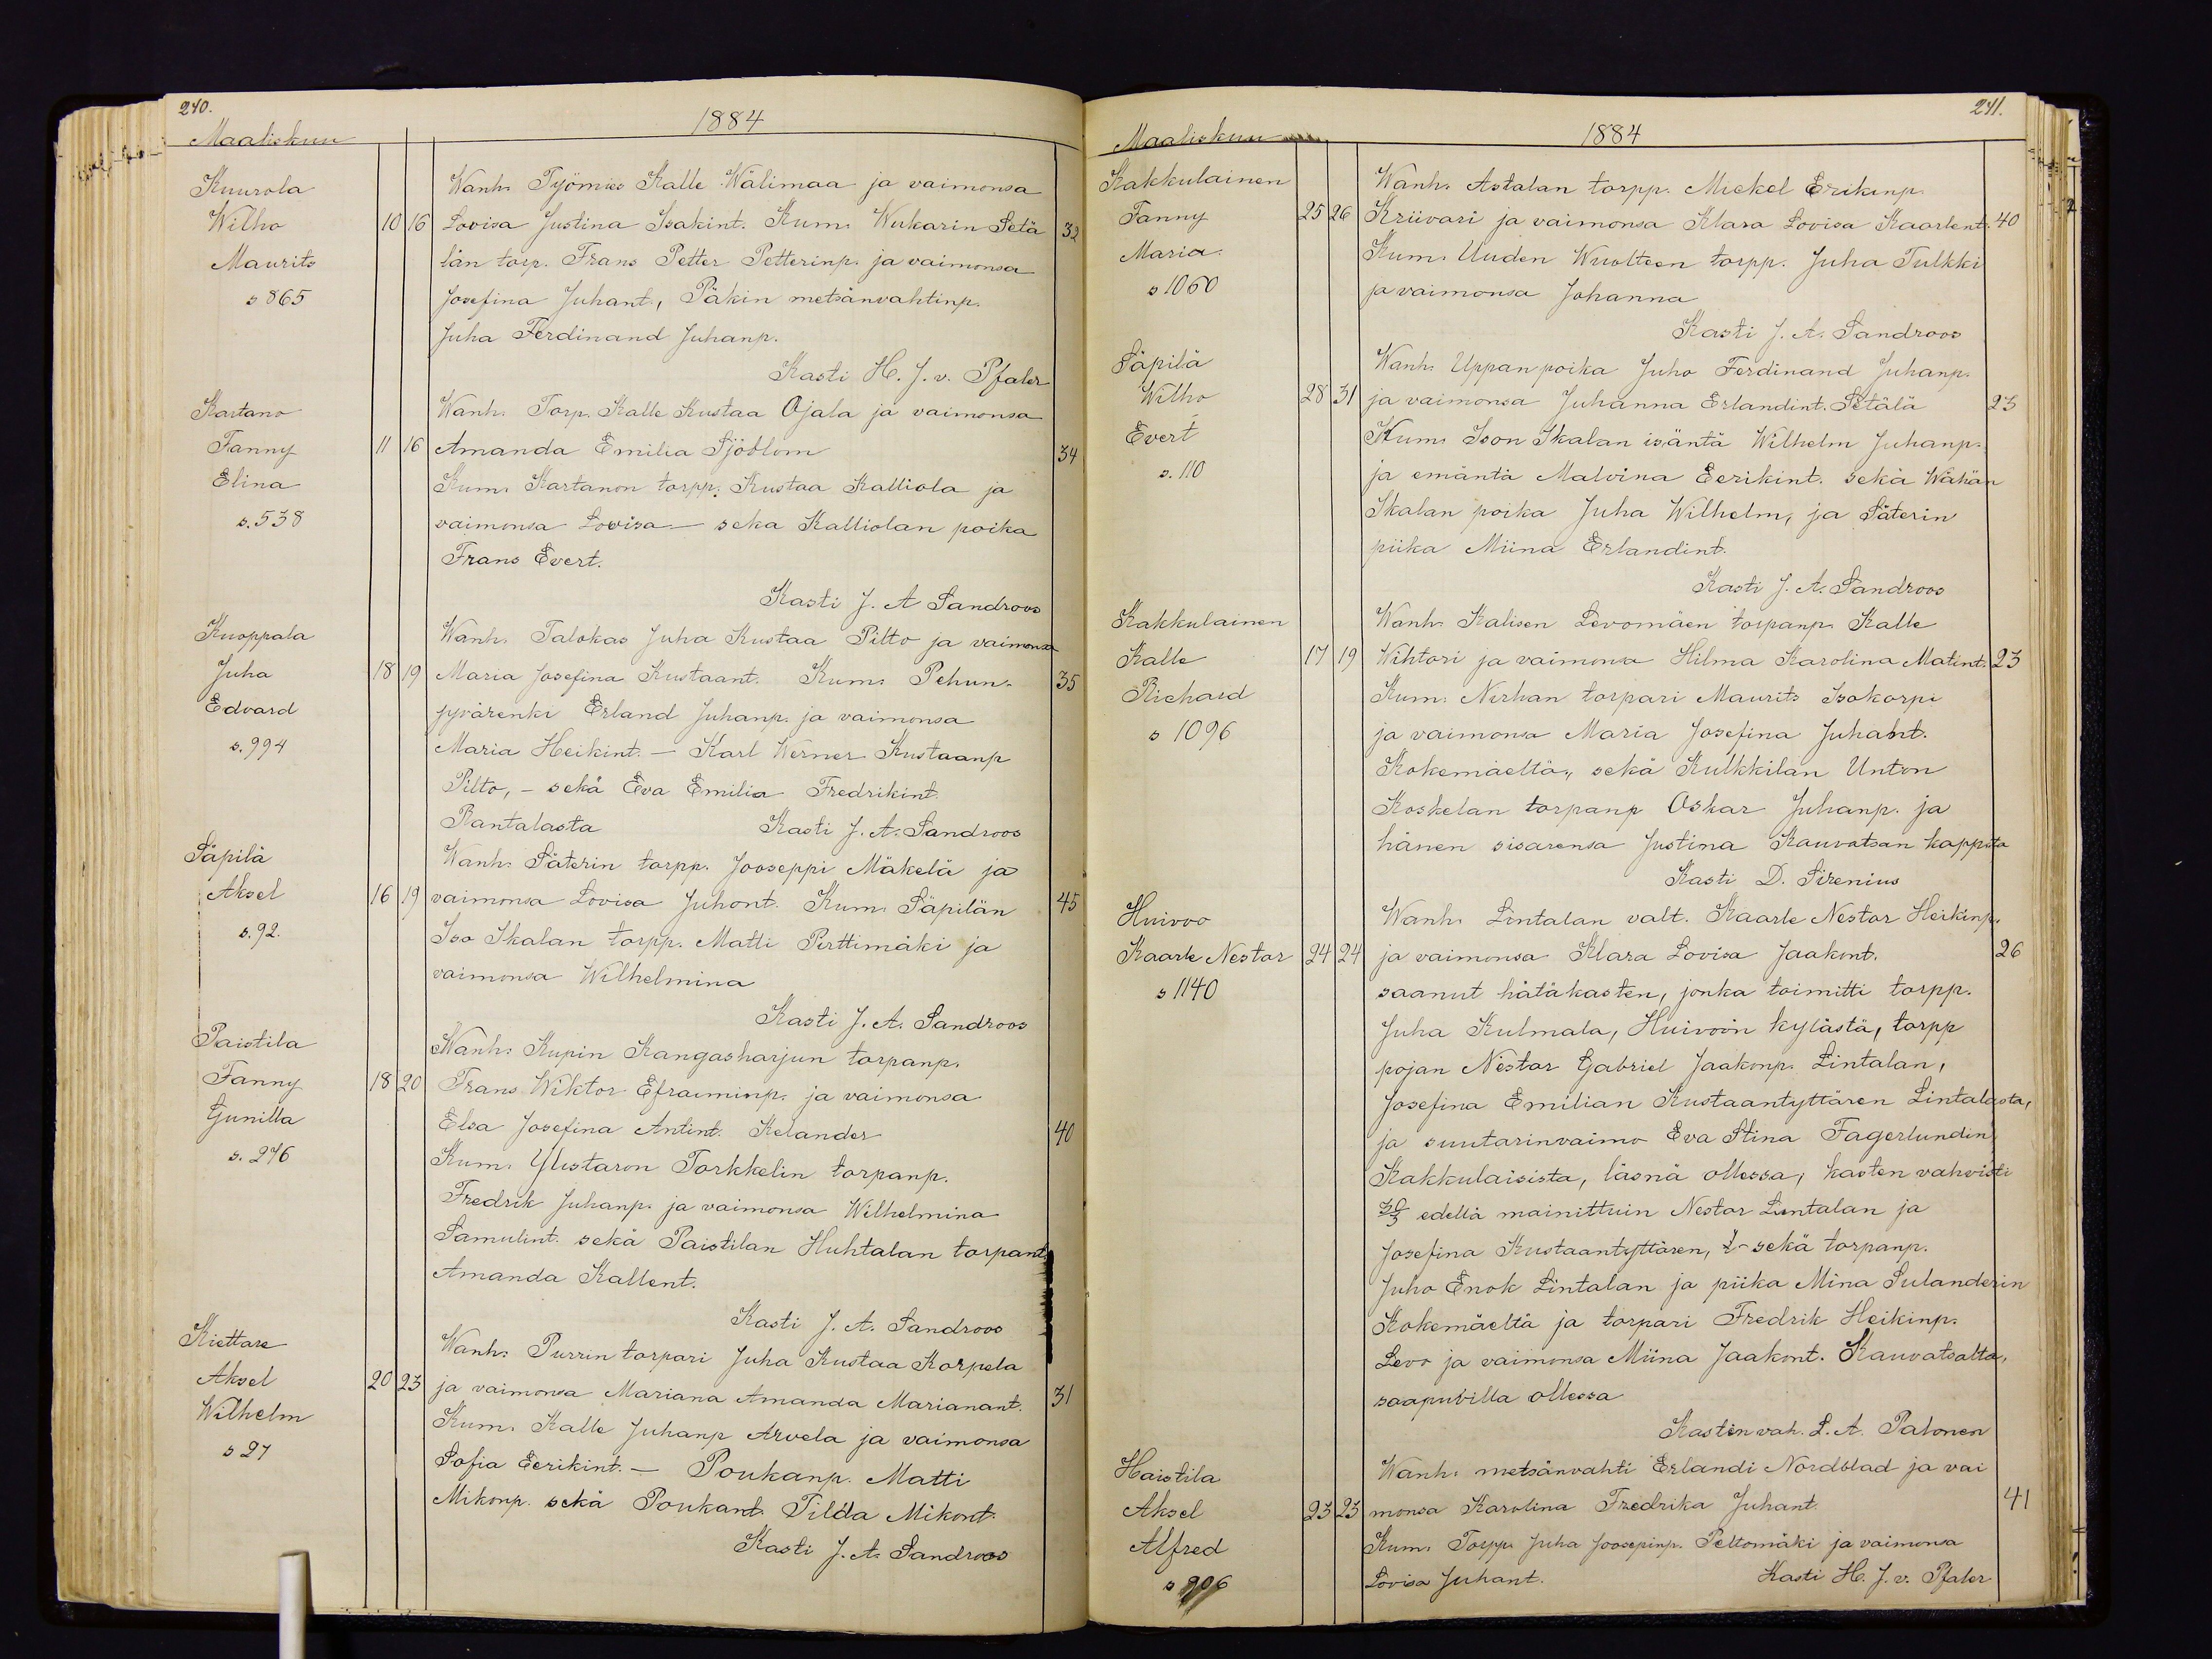 240.
1884
Maaliskuu
Kuurola
Wanh. Työmies Kalle Wälimaa ja vaimonsa
Wilho 10 16 Lovisa Justina Isakint. Kum. Wukarin Setä 32
Maurits län torp. Frans Petter Petterinp. ja vaimonsa
s 865 Josefina Juhant., Päkin metsänvahtinp.
Juha Ferdinand Juhanp.
Kasti H. J. v. Pfaler
Kartano Wanh. Torp. Kalle Kustaa Ojala ja vaimonsa
Fanny 11 16 Amanda Emilia Sjöblom 34
Elina Kum. Kartanon torpp. Kustaa Kalliola ja
s. 538 vaimonsa Lovisa — seka Kalliolan poika
Frans Evert.
Kasti J. A Sandroos
Kuoppala Wanh. Talokas Juha Kustaa Pilto ja vaimonsa
Juha 18 19 Maria Josefina Kustaant. Kum. Pehun- 35
Edvard jyvärenki Erland Juhanp. ja vaimonsa
s. 994 Maria Heikint. — Karl Werner Kustaanp
Pilto, – sekä Eva Emilia Fredrikint.
Rantalasta Kasti J. A. Sandroos
Säpilä Wanh. Säterin torpp. Jooseppi Mäkelä ja
Aksel 16 19 vaimonsa Lovisa Juhont. Kum. Säpilän 45
s. 92. Iso Ikalan torpp. Matti Perttimäki ja
vaimonsa Wilhelmina
Kasti J. A. Sandroos
Paistila Wanh. Kupin Kangasharjun torpanp.
Fanny 18 20 Frans Wiktor Efraiminp. ja vaimonsa
Gunilla Elsa Josefina Antint. Kelander 40
s. 276 Kum. Ylistaron Torkkelin torpanp.
Fredrik Juhanp. ja vaimonsa Wilhelmina
Samulint. sekä Paistilan Huhtalan torpant.
Amanda Kallent.
Kasti J. A. Sandroos
Kiettare Wanh. Purrin torpari Juha Kustaa Korpela
Aksel 20 23 ja vaimonsa Mariana Amanda Marianant. 31
Wilhelm Kum. Kalle Juhanp Arvela ja vaimonsa
s 27 Sofia Eerikint. — Poukanp. Matti
Mikonp. sekä Poukant. Tilda Mikont.
Kasti J. A. Sandroos
241.
1884
Maaliskuu
Kakkulainen Wanh. Astalan torpp. Mickel Erikinp.
Fanny 25 26 Kriivari ja vaimonsa Klara Lovisa Kaarlent. 40
Maria Kum. Uuden Wuolteen torpp. Juha Tulkki
s 1060 ja vaimonsa Johanna
Kasti J. A. Sandroos
Säpilä Wanh. Uppan poika Juho Ferdinand Juhanp.
Wilho 28 31 ja vaimonsa Juhanna Erlandint. Setälä 23
Evert Kum. Ison Ikalan isäntä Wilhelm Juhanp.
s. 110 ja emäntä Malvina Eerikint. sekä Wähän
Ikalan poika Juha Wilhelm, ja Säterin
piika Miina Erlandint.
Kasti J. A. Sandroos
Kakkulainen Wanh. Kalisen Levomäen torpanp. Kalle
Kalle 17 19 Wihtori ja vaimonsa Hilma Karolina Matint. 23
Richard Kum. Nirhan torpari Maurits Isokorpi
s 1096 ja vaimonsa Maria Josefina Juhant.
Kokemäeltä, sekä Kulkkilan Unton
Koskelan torpanp Oskar Juhanp. ja
hänen sisarensa Justina Kauvatsan kappsta
Kasti D. Sirenius
Huivoo Wanh. Lintalan valt. Kaarle Nestor Heikinp.
Kaarle Nestor 24 24 ja vaimonsa Klara Lovisa Jaakont. 26
s 1140 saanut hätäkasten, jonka toimitti torpp.
Juha Kulmala, Huivoon kylästä, torpp
pojan Nestor Gabriel Jaakonp. Lintalan,
Josefina Emilian Kustaantyttären Lintalasta,
ja suutarinvaimo Eva Stina Fagerlundin
Kakkulaisista, läsnä ollessa, kasten vahvisti
30/3 edellä mainittuin Nestor Lintalan ja
Josefina Kustaantyttären, – sekä torpanp.
Juho Enok Lintalan ja piika Mina Sulanderin
Kokemäeltä ja torpari Fredrik Heikinp.
Levo ja vaimonsa Miina Jaakont. Kauvatsalta,
saapuvilla ollessa
Kasten vah. L. A. Palonen
Haistila Wanh. metsänvahti Erlandi Nordblad ja vai
Aksel 23 23 monsa Karolina Fredrika Juhant. 41
Alfred Kum. Torpp. Juha Joosepinp. Peltomäki ja vaimonsa
s 906 Lovisa Juhant. Kasti H. J. v. Pfaler